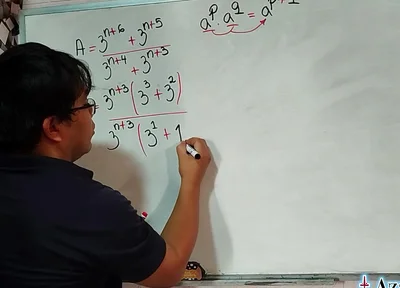 A = 3^{n+6} + 3^{n+5} / 3^{n+4} + 3^{n+3}
a^p · a^q = a^{p+q}
= 3^{n+3} ( 3^3 + 3^2 ) / 3^{n+3} ( 3^1 + 1